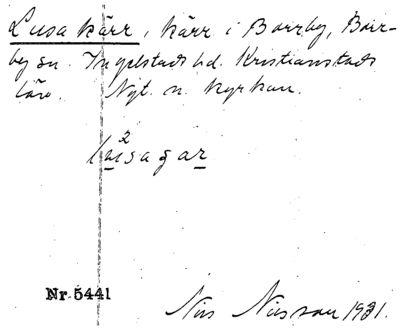 Lusakärr, kärr i Borrby, Borr-
by sn. Ingelstads hd. Kristianstads
län. Nyl. n. kyrkan.
Nr 5441
Nils Nilsson 1931.